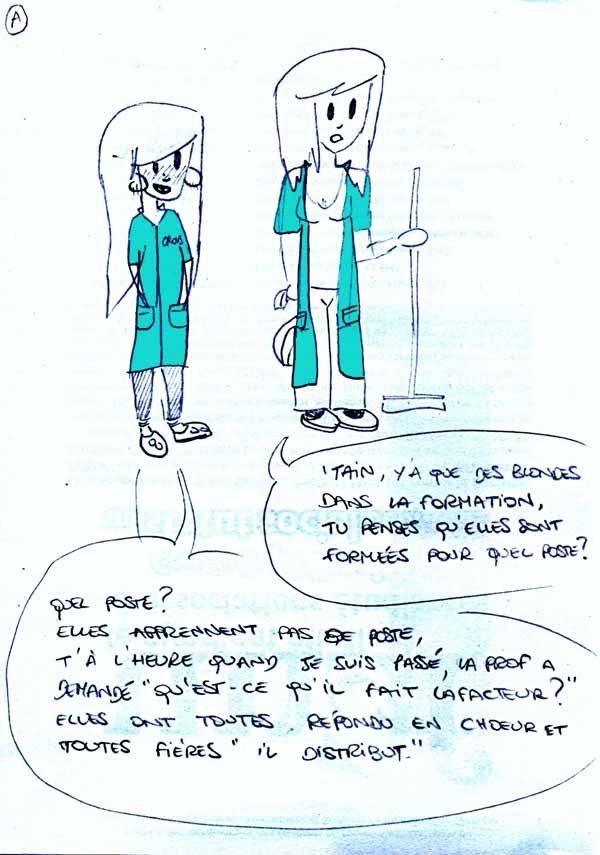 A
CROUS
'TAIN, Y'A QUE DES BLONDES
DANS LA FORMATION,
TU PENSES QU'ELLES SONT
FORMÉES POUR QUEL POSTE?
QUEL POSTE?
ELLES APPRENNENT PAS DE POSTE,
T'À L'HEURE QUAND JE SUIS PASSÉ, LA PROF A
DEMANDÉ "QU'EST-CE QU'IL FAIT LAFACTEUR?"
ELLES ONT TOUTES RÉPONDU EN CHOEUR ET
TOUTES FIÈRES " IL DISTRIBUT."